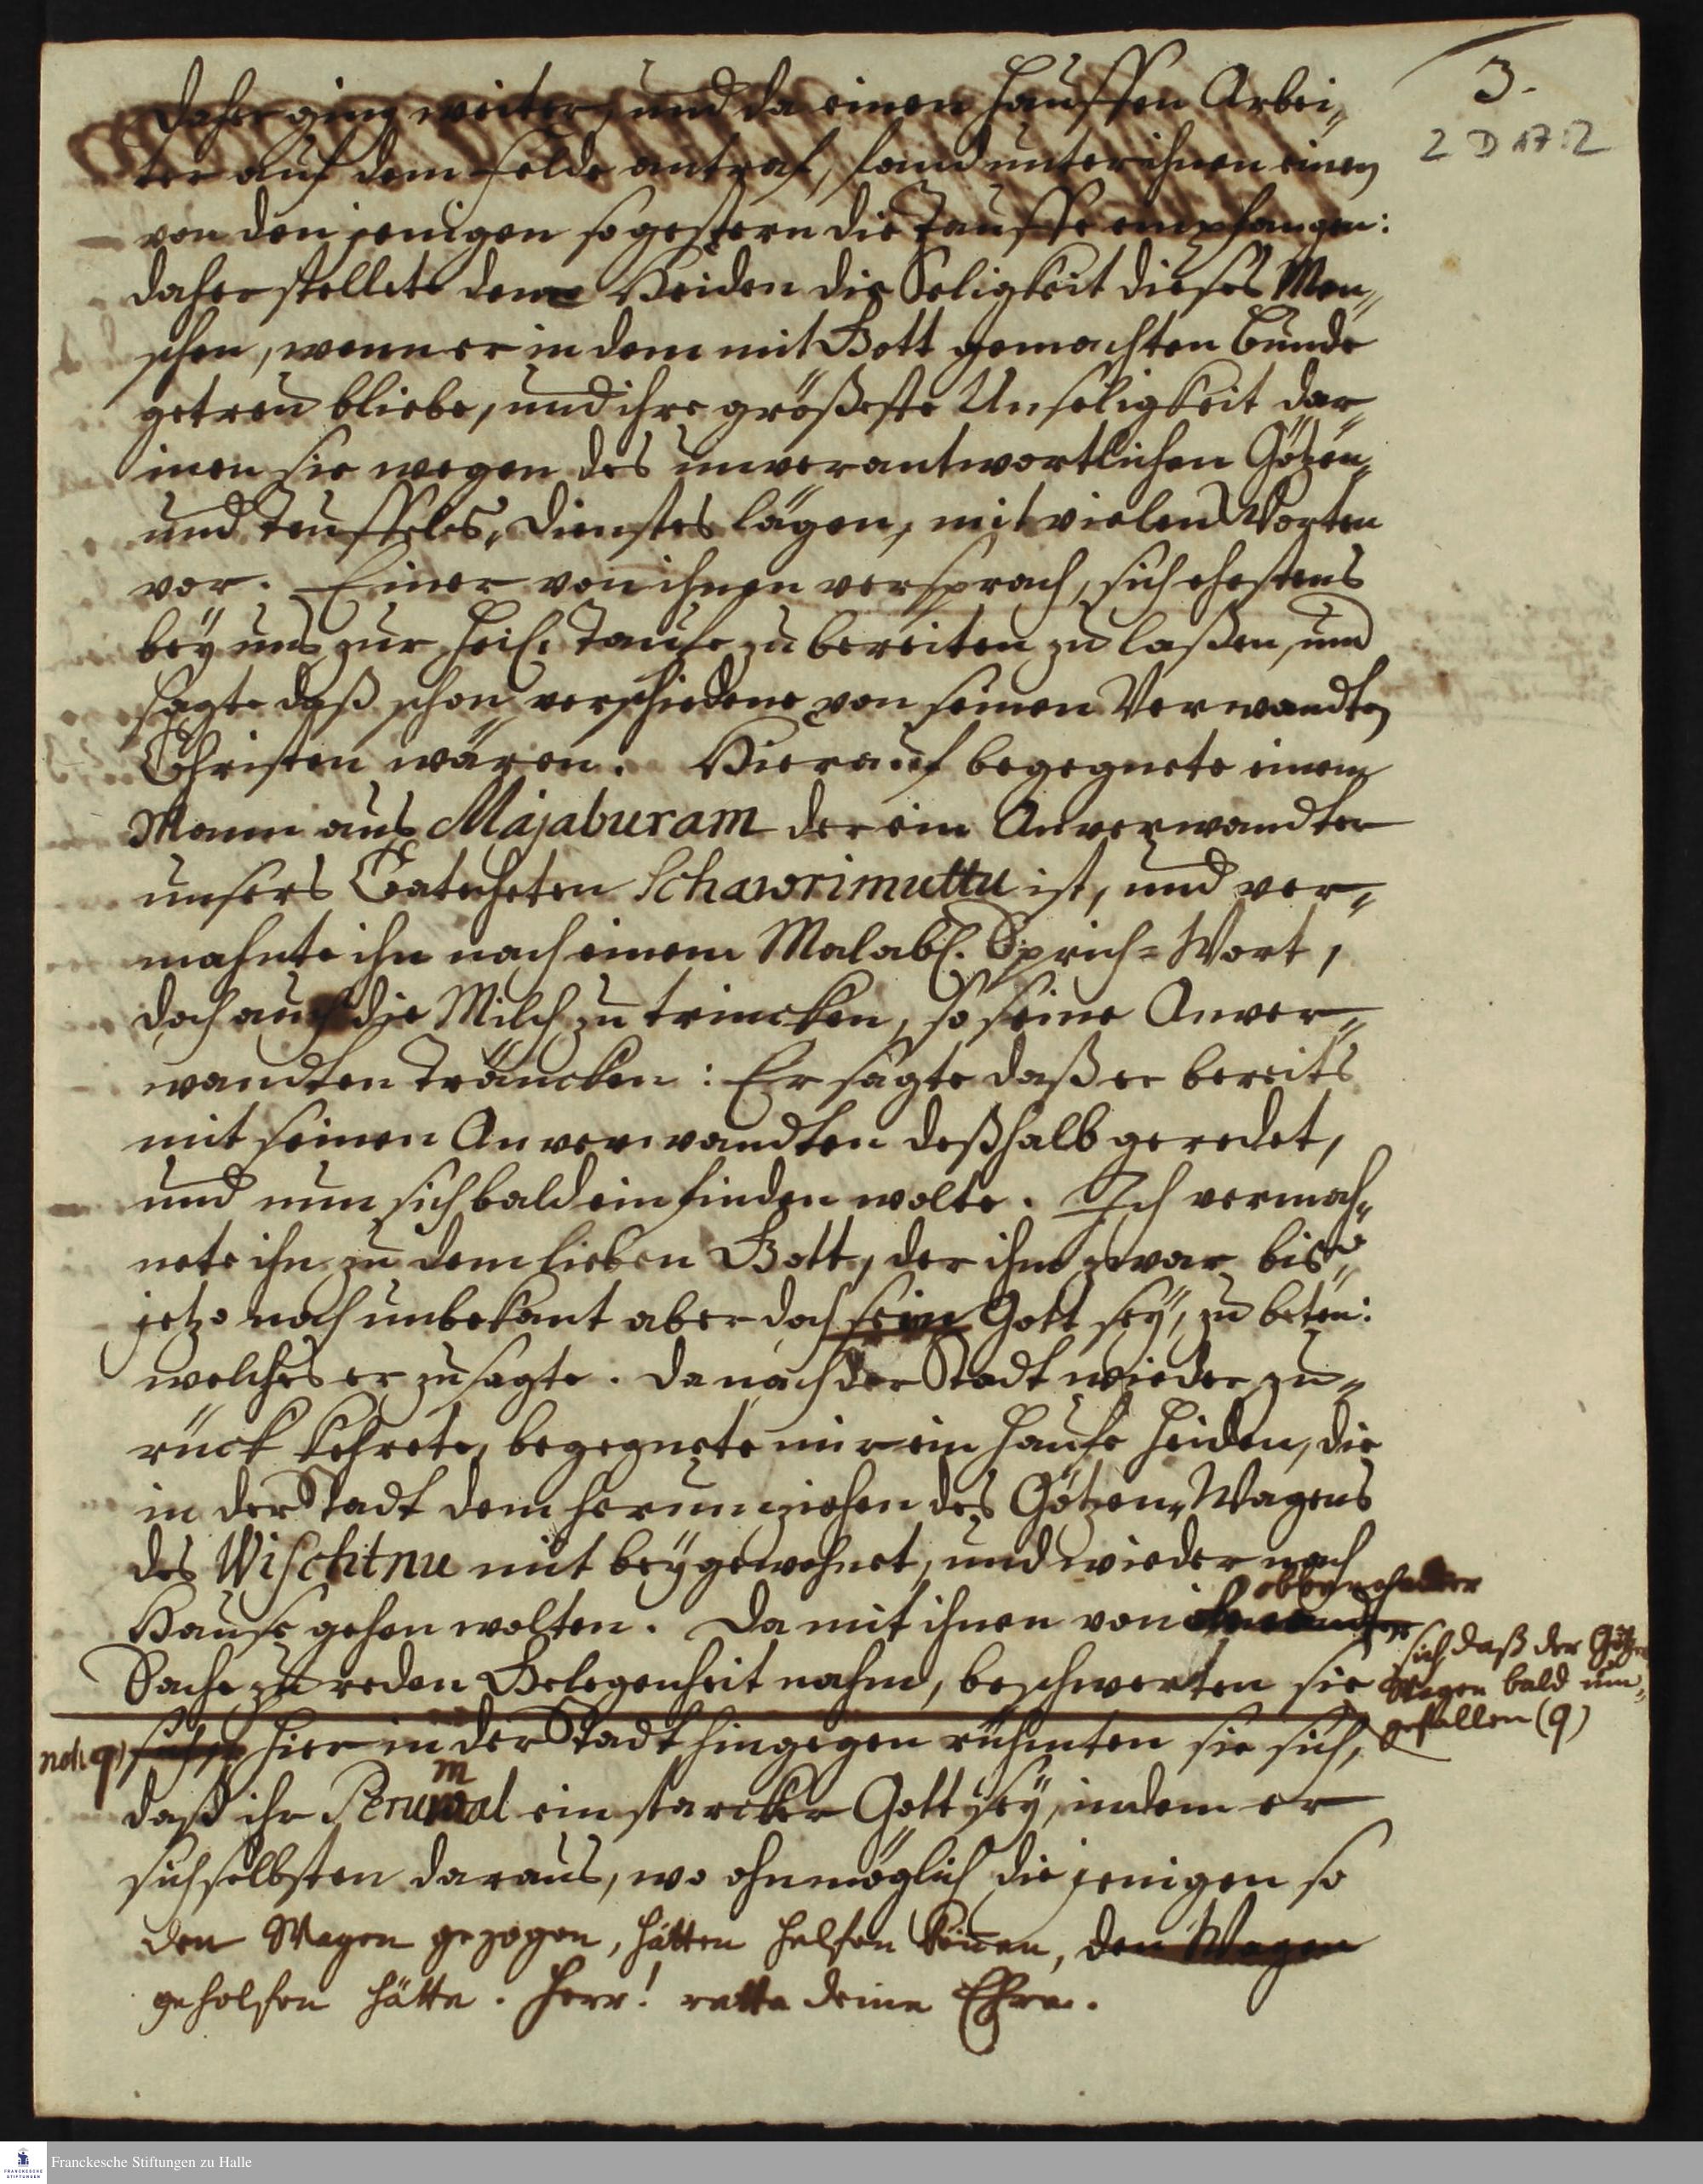 3.
2 D 17:2
Daher ging weiter, und da einen Hauffen Arbei„
ter auf dem Felde antraf, fand unter ihnen einen
von den jenigen so gestern die Tauffe empfangen:
daher stellete denen Heiden die Seligkeit dieses Men„
schen, wenn er in dem mit Gott gemachten Bunde
getreu bliebe, und ihre größeste Unseligkeit dar„
innen sie wegen des unverantwortlichen Götzen„
und Teuffels„ Dienstes lägen, mit vielen Worten
vor. Einer von ihnen versprach, sich ehestens
bey uns zur heil. Taufe zu bereiten zu laßen, und
sagte daß schon verschiedene von seinen Verwandten
Christen wären. Hierauf begegnete einem
Mann aus Majaburam der ein Anverwandter
unsers Catecheten Schawrimuttu ist, und ver„
mahnte ihn nach einem Malab. Sprich=Wort,
doch auch die Milch zu trincken, so seine Anver„
wandten träncken: Er sagte daß er bereits
mit seinen Anverwandten deßhalb geredet,
und nun sich bald einfinden wolte. Ich vermah„
nete ihn zu dem lieben Gott, der ihm zwar bis„
jetzo noch unbekant aber doch sein Gott sey, zu beten:
welches er zusagte. Da nach der Stadt wieder zu„
rück kehrete, begegnete mir ein Haufe Heiden, die
in der Stadt dem herumziehen des Götzen„ Wagens
des Wischtnu mit beygewohnet, und wieder nach
Hause gehen wolten. Da mit ihnen von
Sache zu reden Gelegenheit nahm, beschwerten sie
sich, daß der Götzen
Wagen bald um„
gefallen (q)
not. q) hier in der Stadt hingegen rühmten sie sich,
daß ihr Perumal ein starcker Gott sey, indem er
sich selbsten daraus, wo ohnmöglich die jenigen so
den Wagen gezogen, hätten helfen können, den Wagen
geholfen hätte. Herr! rette deine Ehre.
Franckesche Stiftungen zu Halle